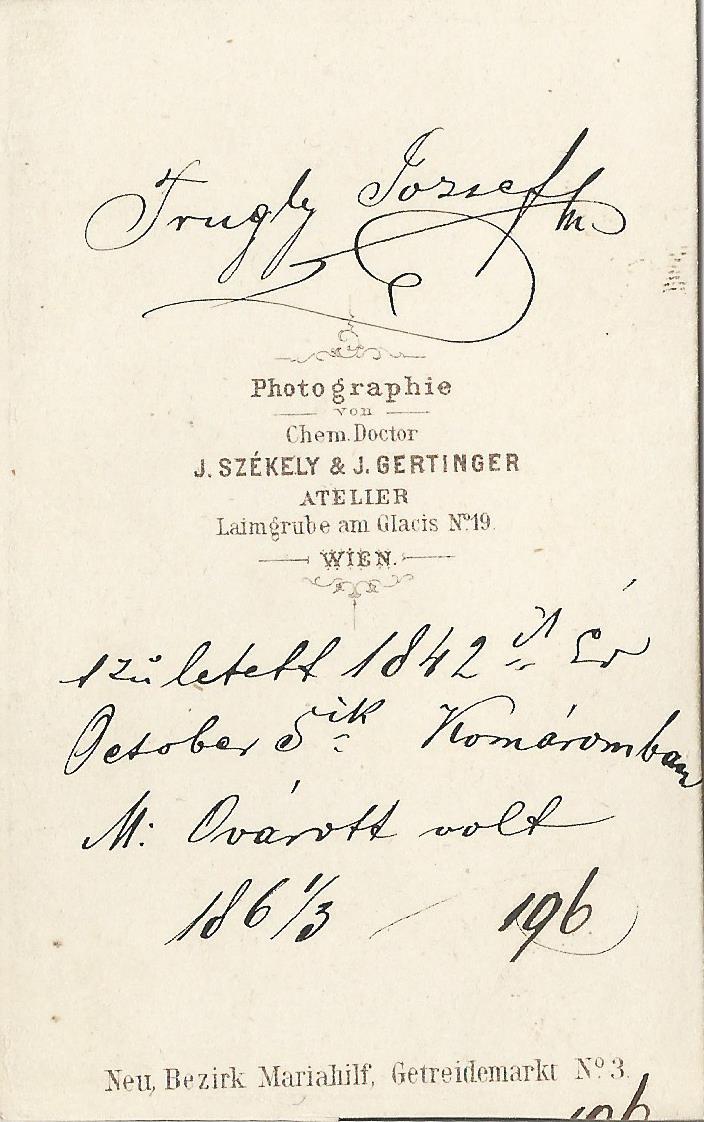 Trugly Jozsef m
Photographie
von
Chem. Doctor
J. SZÉKELY & J. GERTINGER
ATELIER
Laimgrube am Glacis No. 19.
WIEN.
született 1842 ik Év
October 5ik Komáromban
M: Óvárott volt
186 1/3 — 196
Neu, Bezirk Mariahilf, Getreidemarkt No. 3.
196